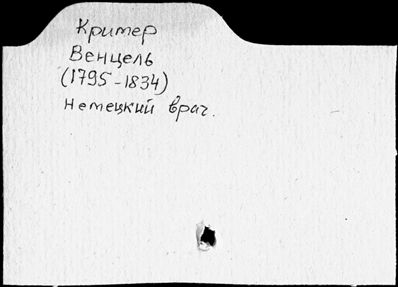 Кример
Венцель
(1795-1834)
Немецкий врач.